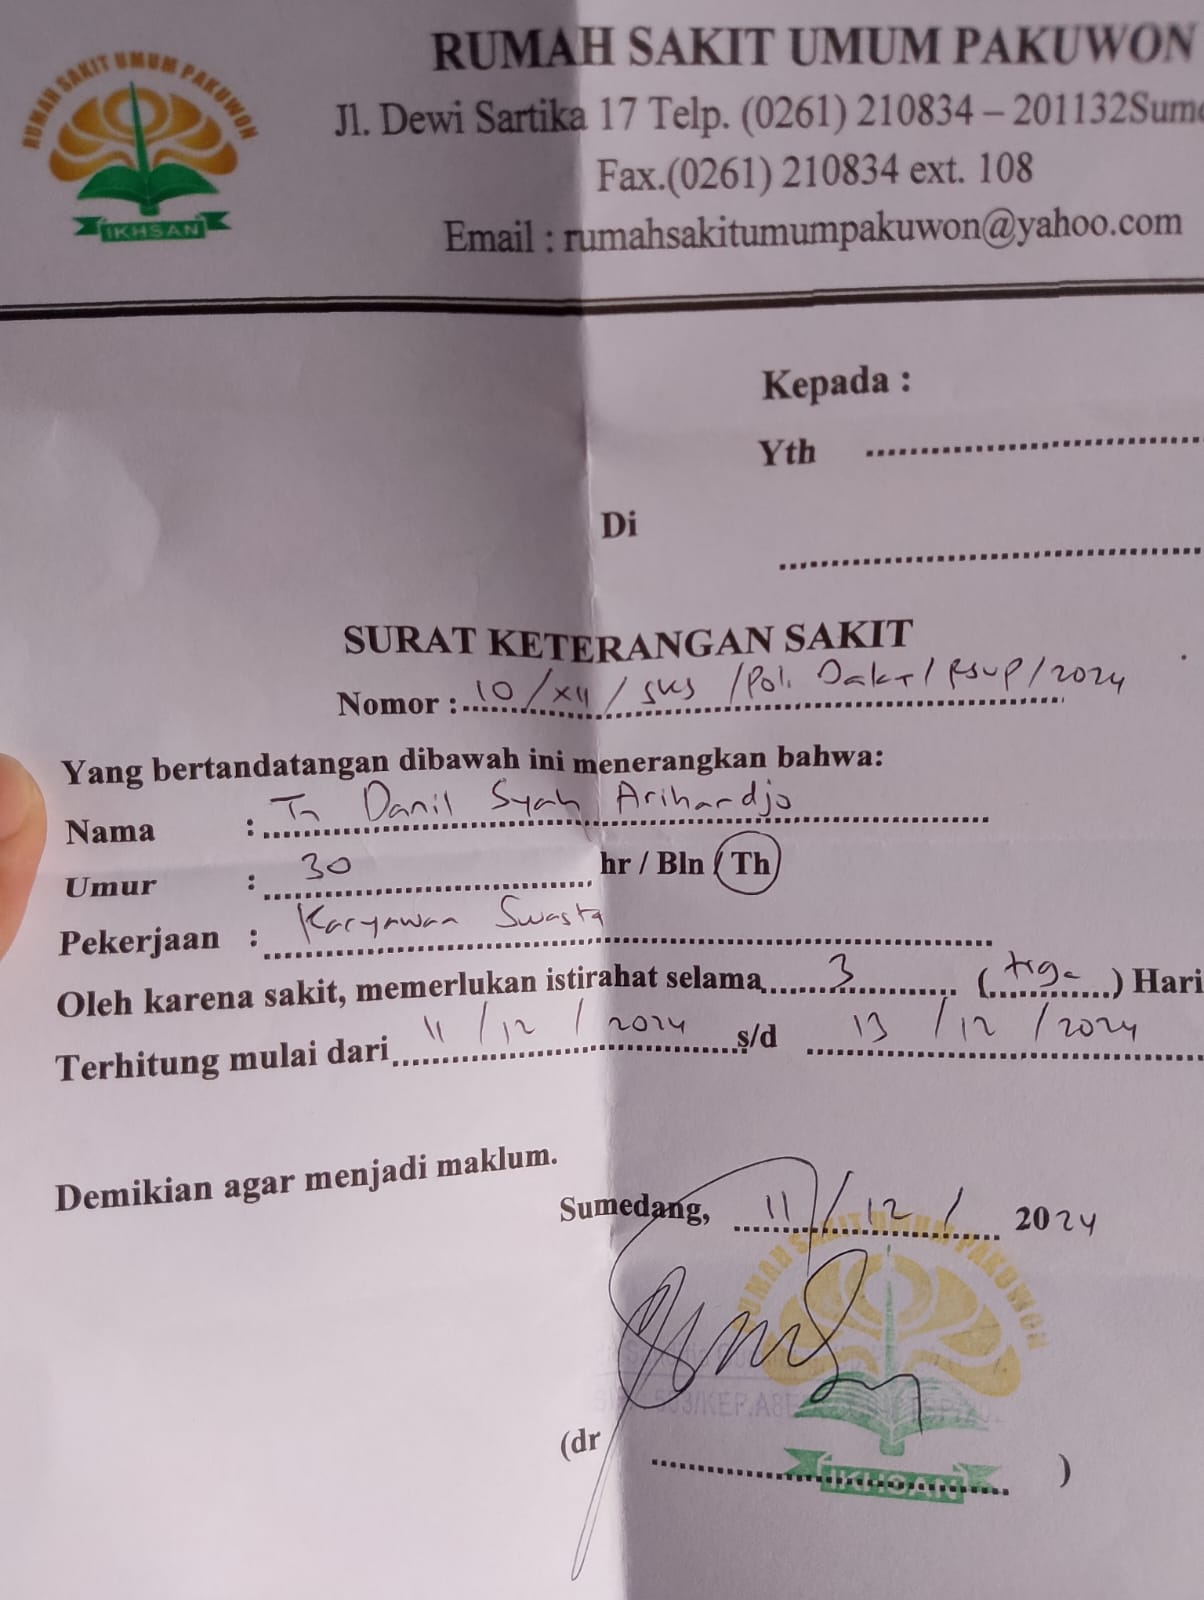 RUMAH SAKIT UMUM PAKUWON
RUMAH SAKIT UMUM PAKUWON
IKHSAN
Jl. Dewi Sartika 17 Telp. (0261) 210834 – 201132
Fax.(0261) 210834 ext. 108
Email : rumahsakitumumpakuwon@yahoo.com
Kepada :
Yth
Di
SURAT KETERANGAN SAKIT
Nomor : 10/XII/SKS/Poli /RSUP/2024
Yang bertandatangan dibawah ini menerangkan bahwa:
Nama : Tn Danil Syah Arihardjo
Umur : 30 hr / Bln / Th
Pekerjaan : Karyawan Swasta
Oleh karena sakit, memerlukan istirahat selama 3 (tiga) Hari
Terhitung mulai dari 11/12/2024 s/d 13/12/2024
Demikian agar menjadi maklum.
Sumedang, 11/12/ 2024
RUMAH SAKIT UMUM PAKUWON
(dr )
IKHSAN